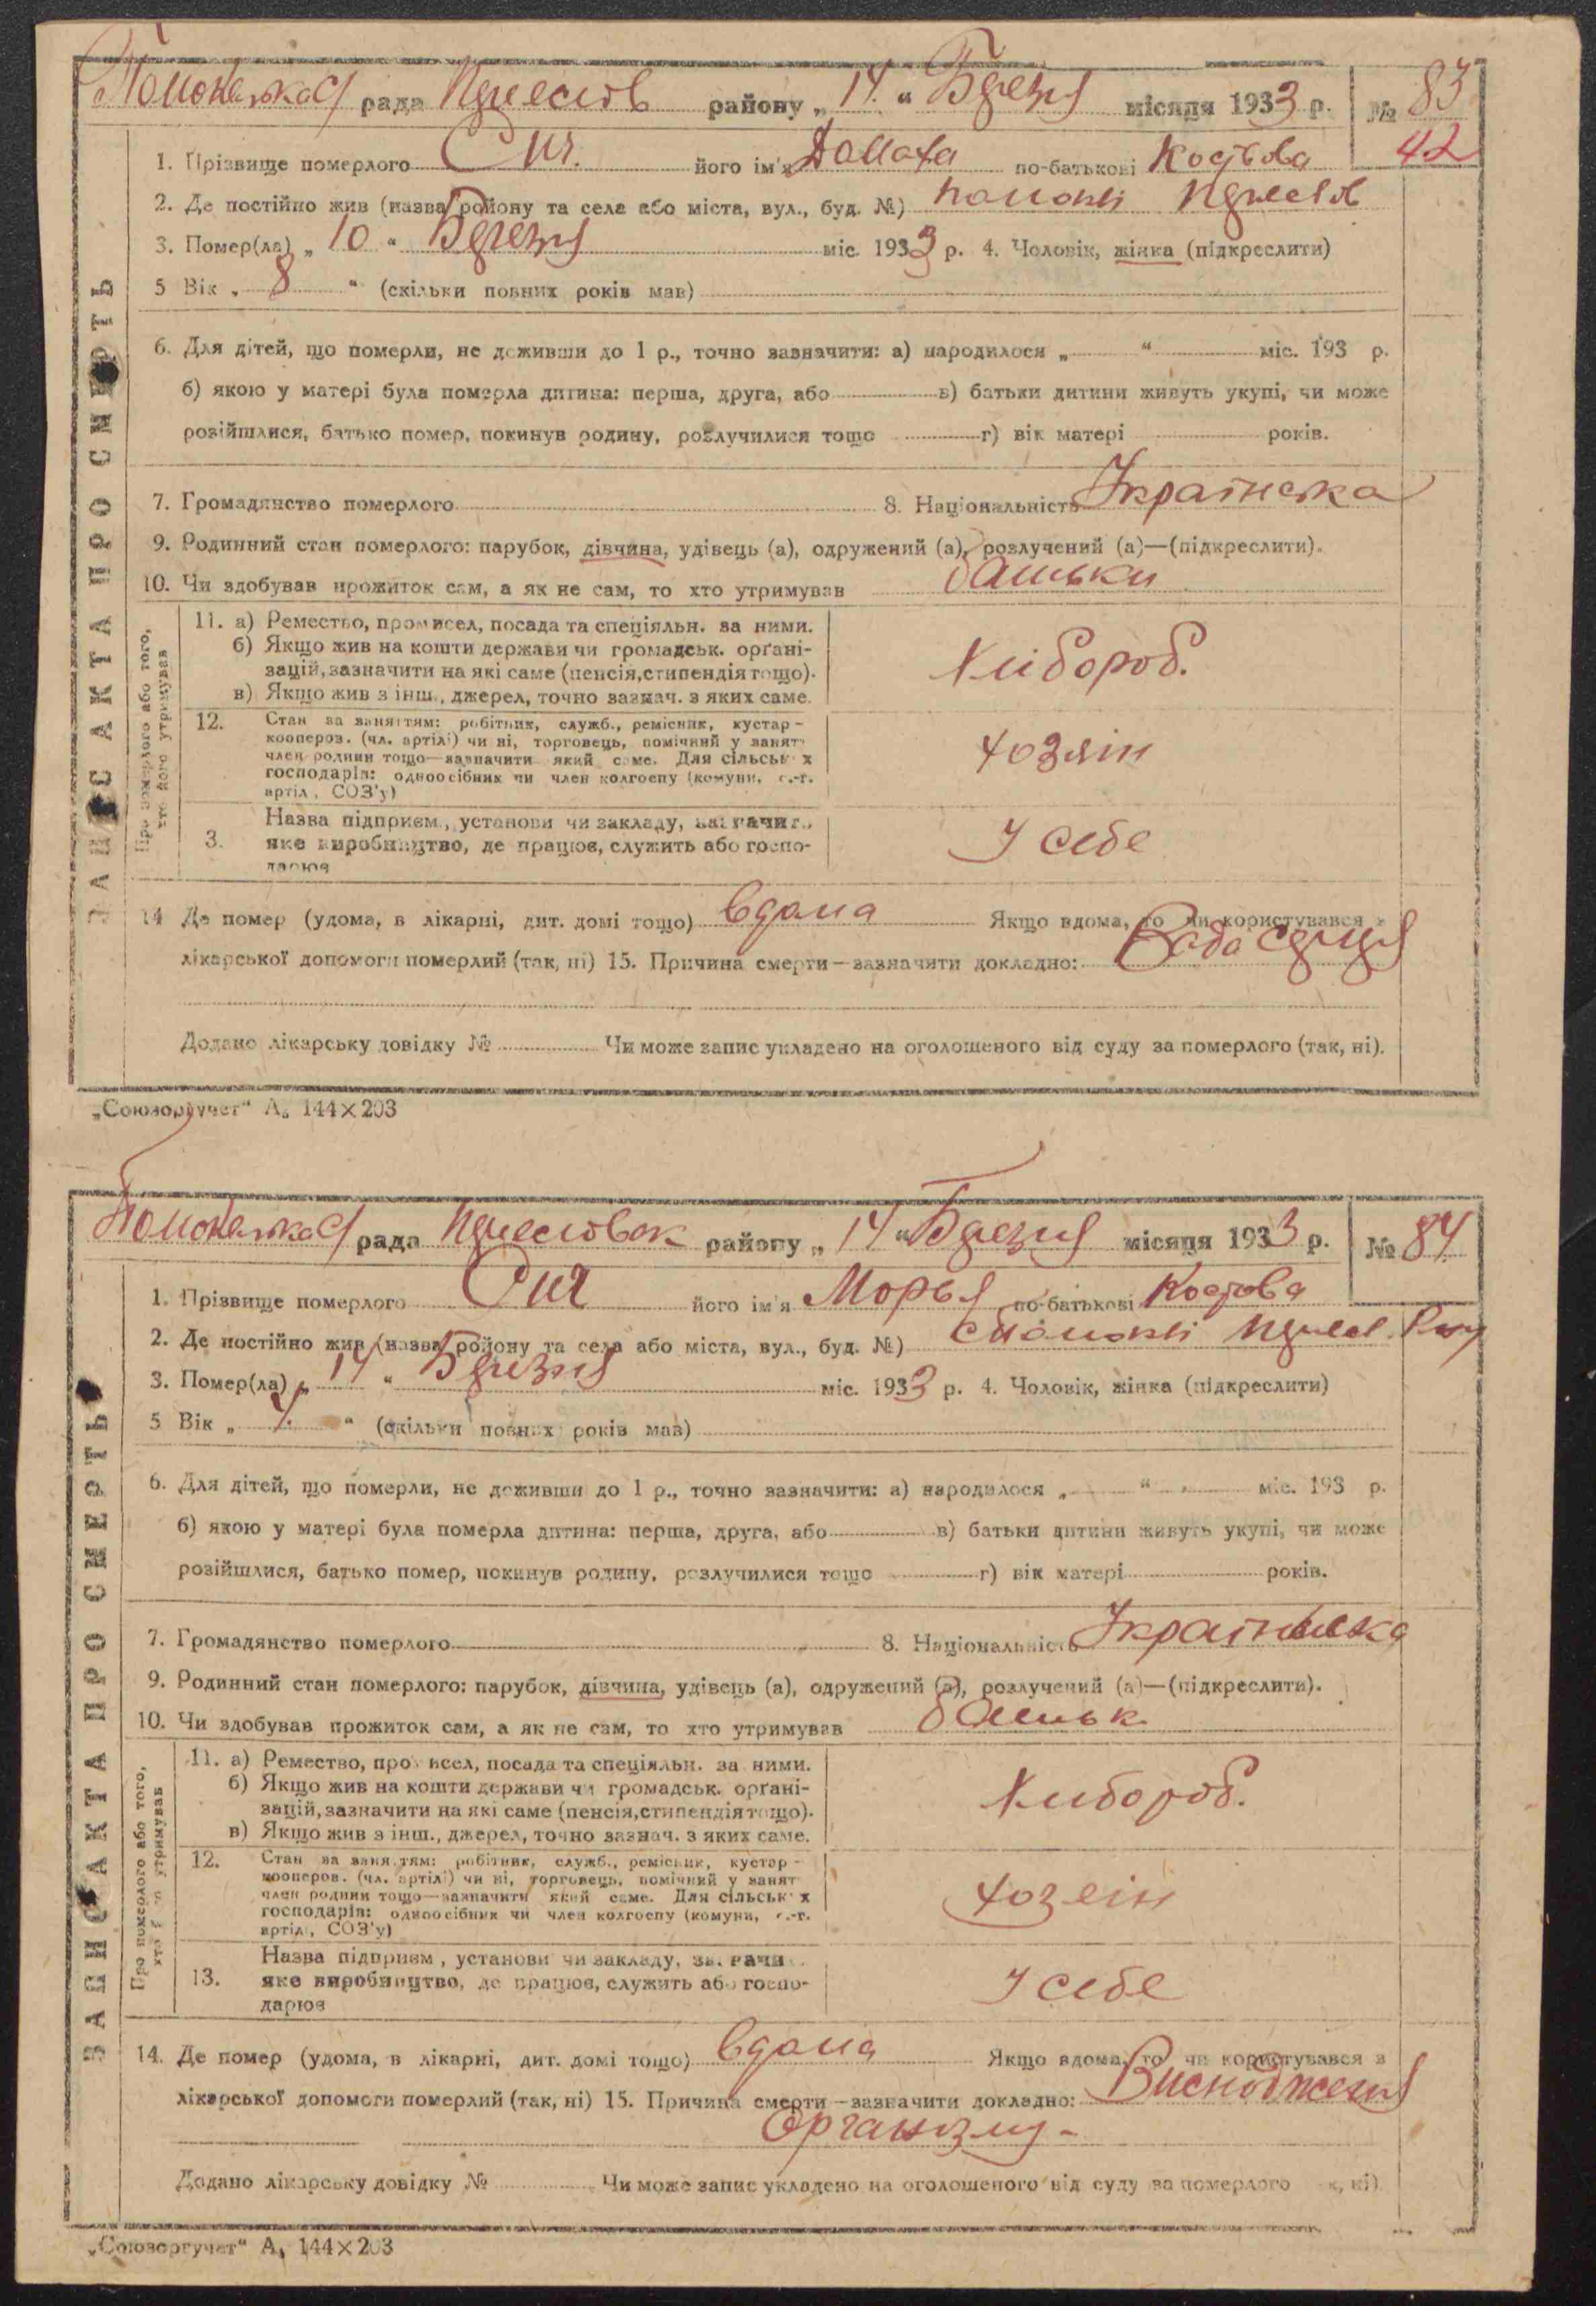 рада району „ 14 “ Березня місяця 1933 р. № 83
42
1. Прізвище померлого Сич. його ім'я Домаха по-батькові Костьова
2. Де постійно жив (назва району та села або міста, вул., буд. №)
3. Помер(ла) „ 10 “ Березня міс. 1933 р. 4. Чоловік, жінка (підкреслити)
5 Вік „ 8 “ (скільки повних років мав)
6. Для дітей, що померли, не доживши до 1 р., точно зазначити: а) народилося „ “ міс. 193 р.
б) якою у матері була померла дитина: перша, друга, або в) батьки дитини живуть укупі, чи може
розійшлися, батько помер, покинув родину, розлучилися тощо г) вік матері років.
7. Громадянство померлого 8. Національність Українська
9. Родинний стан померлого: парубок, дівчина, удівець (а), одружений (а), розлучений (а)—(підкреслити).
10. Чи здобував прожиток сам, а як не сам, то хто утримував батьки
ЗАПИС АКТА ПРО СМЕРТЬ
Про померлого або того,
хто його утримував
11. а) Ремество, промисел, посада та спеціяльн. за ними.
б) Якщо жив на кошти держави чи громадськ. орґані-
зацій, зазначити на які саме (пенсія, стипендія тощо).
в) Якщо жив з інш., джерел, точно зазнач. з яких саме.
Хлібороб.
12. Стан за заняттям: робітник, служб., ремісник, кустар-
кооперов. (чл. артілі) чи ні, торговець, помічний у занят
член родини тощо—зазначити який саме. Для сільськ х
господарів: одноосібник чи член колгоспу (комуни, с.-г.
артіл, СОЗ'у)
хозяін
3. Назва підприєм., установи чи закладу, зазначить
яке виробництво, де працює, служить або госпо-
дарює
У себе
14 Де помер (удома, в лікарні, дит. домі тощо) вдома Якщо вдома, то чи користувався з
лікарської допомоги померлий (так, ні) 15. Причина смерти—зазначити докладно: Вада серця
Додано лікарську довідку № Чи може запис укладено на оголошеного від суду за померлого (так, ні).
„Союзоргучет“ А₆ 144×203
рада району „ 14 “ Березня місяця 1933 р. № 84
1. Прізвище померлого Сич його ім'я Морья по-батькові Костова
2. Де постійно жив (назва району та села або міста, вул., буд. №)
3. Помер(ла) „ 14 “ Березня міс. 1933 р. 4. Чоловік, жінка (підкреслити)
5 Вік „ “ (скільки повних років мав)
6. Для дітей, що померли, не доживши до 1 р., точно зазначити: а) народилося „ “ міс. 193 р.
б) якою у матері була померла дитина: перша, друга, або в) батьки дитини живуть укупі, чи може
розійшлися, батько помер, покинув родину, розлучилися тощо г) вік матері років.
7. Громадянство померлого 8. Національність Українська
9. Родинний стан померлого: парубок, дівчина, удівець (а), одружений (а), розлучений (а)—(підкреслити).
10. Чи здобував прожиток сам, а як не сам, то хто утримував батьк
ЗАПИС АКТА ПРО СМЕРТЬ
Про померлого або того,
хто утримував
11. а) Ремество, промисел, посада та спеціяльн. за ними.
б) Якщо жив на кошти держави чи громадськ. орґані-
зацій, зазначити на які саме (пенсія, стипендія тощо).
в) Якщо жив з інш., джерел, точно зазнач. з яких саме.
Хлібороб.
12. Стан за занят.тям: робітник, служб., ремісник, кустар-
кооперов. (чл. артілі) чи ні, торговець, помічний у занят
член родини тощо—зазначити який саме. Для сільськ х
господарів: одноосібник чи член колгоспу (комуни, с.-г.
артіл, СОЗ'у)
хозеін
13. Назва підприєм, установи чи закладу, зазначи
яке виробництво, де працює, служить або госпо-
дарює
У себе
14. Де помер (удома, в лікарні, дит. домі тощо) вдома Якщо вдома, то чи користувався з
лікарської допомоги померлий (так, ні) 15. Причина смерти—зазначити докладно: Висноджения
Организму-
Додано лікарську довідку № Чи може запис укладено на оголошеного від суду за померлого к, ні)
„Союзоргучет“ А₆ 144×203